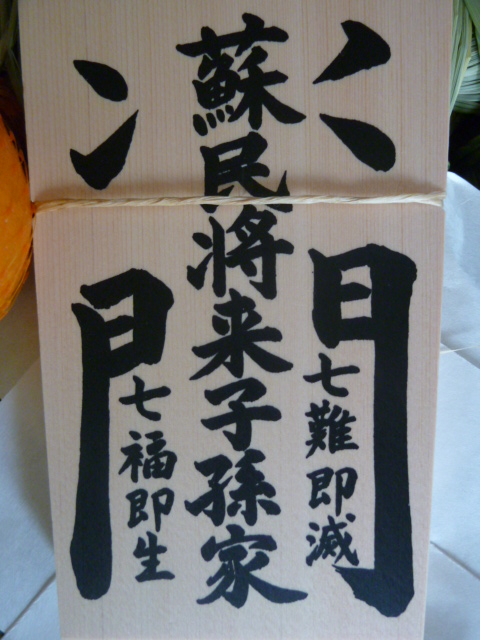 七難即滅
蘇民将来子孫家
門
七福即生